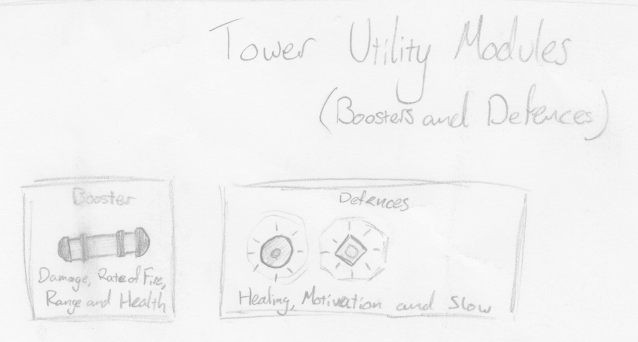 Tower Utility Modules
(Boosters and Defences)
Booster
Damage, Rate of Fire,
Range and Health
Defences
Healing, Motivation and Slow